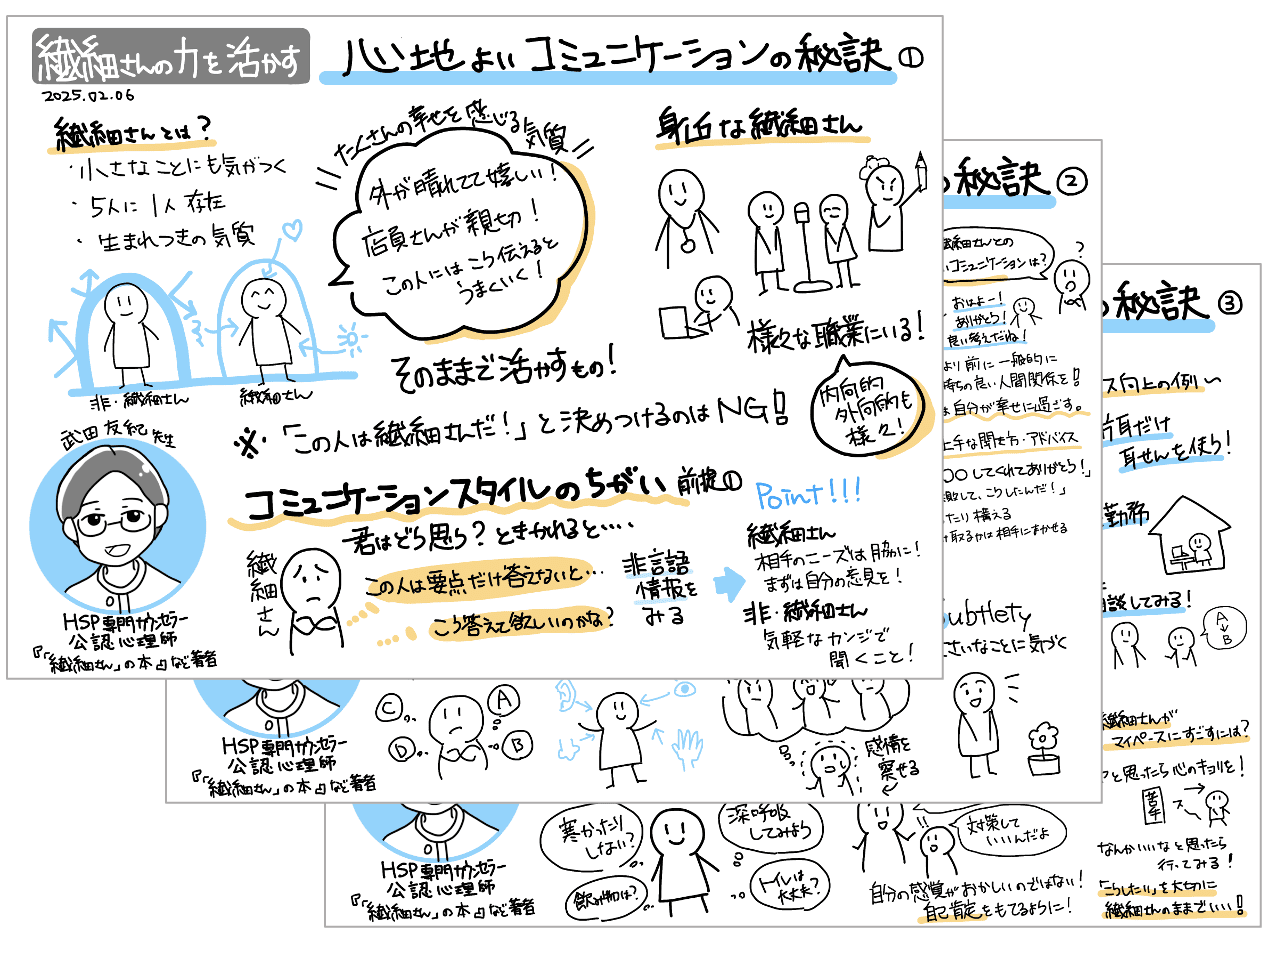 繊細さんの力を活かす
心地よい コミュニケーションの秘訣①
2025.02.06
繊細さんとは?
・小さなことにも気がつく
・5人に1人 存在
・生まれつきの気質
非・繊細さん
繊細さん
たくさんの幸せを感じる気質
外が晴れてて嬉しい!
店員さんが親切!
この人にはこう伝えると
うまくいく!
そのままで活かすもの!
身近な繊細さん
様々な職業にいる!
内向的
外向的も
様々!
※「この人は繊細さんだ!」と決めつけるのはNG!!
武田友紀先生
HSP専門カウンセラー
公認心理師
『「繊細さん」の本』など著者
コミュニケーションスタイルのちがい 前提①
君はどう思う?ときかれると....
繊細さん
この人は要点だけ答えないと...
こう答えて欲しいのかな?
非言語
情報を
みる
Point!!!
繊細さん
相手のニーズは脇に!
まずは自分の意見を!
非・繊細さん
気軽なカンジで
聞くこと!
の秘訣②
繊細さんとの
いコミュニケーションは?
?
おはよー!
ありがとう!
良い考えだね!
より前に一般的に
持ちの良い人間関係を!!
は自分が幸せに過ごす。
上手な聞き方・アドバイス
〇〇してくれてありがとう!」
敗して、こうしたんだ!」
たり構える
け取るかは相手にまかせる
ubtlety
ささいなことに気づく
HSP専門カウンセラー
公認心理師
『「繊細さん」の本』など著者
C
A
D
B
感情を
察せる
の秘訣③
ス向上の例〜
片耳だけ
耳せんを使う!
勤務
相談してみる!
A
B
繊細さんが
マイペースにすごすには?
っと思ったら心のキョリを!
苦手
なんかいいなと思ったら
行ってみる!
「こうしたい」を大切に
繊細さんのままでいい!!
HSP専門カウンセラー
公認心理師
『「繊細さん」の本』など著者
寒かったり
しない?
飲み物は?
深呼吸
してみよう
トイレは
大丈夫?
対策して
いいんだよ
自分の感覚がおかしいのではない!
自己肯定をもてるように!